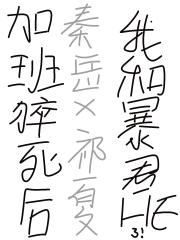 加班猝死后
秦岳×祁夏
我和暴君HE了!